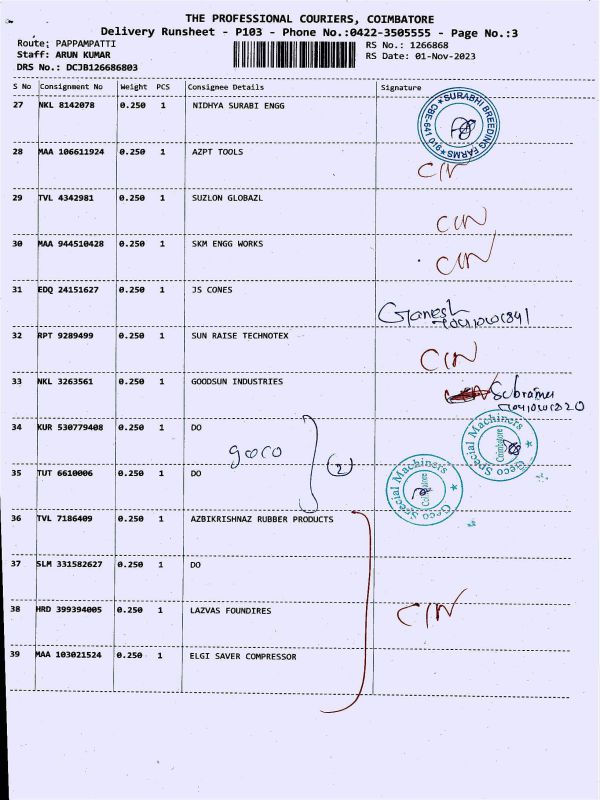 THE PROFESSIONAL COURIERS, COIMBATORE
Delivery Runsheet - P103 - Phone No.:0422-3505555 - Page No.:3
Route: PAPPAMPATTI RS No.: 1266868
Staff: ARUN KUMAR RS Date: 01-Nov-2023
DRS No.: DCJB126686803
S No Consignment No Weight PCS Consignee Details Signature
27 NKL 8142078 0.250 1 NIDHYA SURABI ENGG
SURABHI BREEDING FARMS * CBE-641 016 *
28 MAA 106611924 0.250 1 AZPT TOOLS CIN
29 TVL 4342981 0.250 1 SUZLON GLOBAZL CIN
30 MAA 944510428 0.250 1 SKM ENGG WORKS CIN
31 EDQ 24151627 0.250 1 JS CONES
Ganesh
32 RPT 9289499 0.250 1 SUN RAISE TECHNOTEX CIN
33 NKL 3263561 0.250 1 GOODSUN INDUSTRIES
34 KUR 530779408 0.250 1 DO
geco (2)
Geco Special Machiners * Coimbatore
35 TUT 6610006 0.250 1 DO
Geco Special Machiners * Coimbatore
36 TVL 7186409 0.250 1 AZBIKRISHNAZ RUBBER PRODUCTS
37 SLM 331582627 0.250 1 DO
38 HRD 399394005 0.250 1 LAZVAS FOUNDIRES CIN
39 MAA 103021524 0.250 1 ELGI SAVER COMPRESSOR